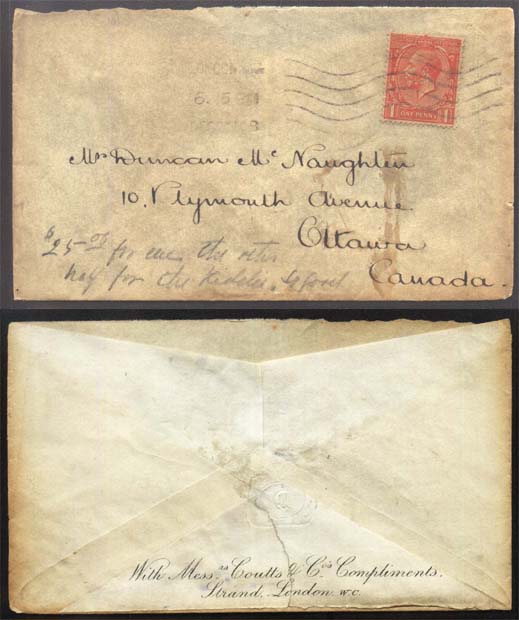 ONE PENNY
Mrs Duncan McNaughten
10. Plymouth Avenue
Ottawa
Canada.
$25.00 for
half for the Kiddies
With Mess.rs Coutts & Co's Compliments.
Strand, London. W.C.